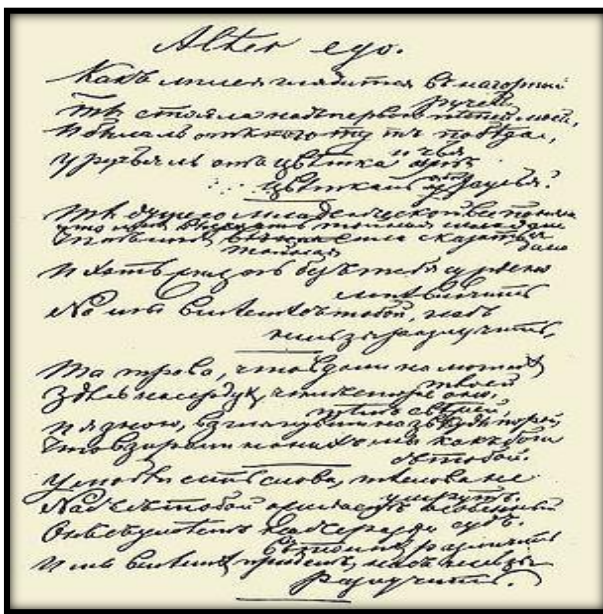 Alter ego.
Какъ лилея глядится въ нагорный
ручей,
Ты стояла надъ первою пѣсней моей,
И была ль при этомъ побѣда,
и чья
У ручья ль отъ цвѣтка
цвѣтка ль отъ ручья?
Ты душою младенческой все поняла
что мнѣ высказать тайная сила
дала
тайная
И хоть жизнь безъ тебя суждено
мнѣ влачить
Но мы вмѣстѣ съ тобой, насъ
нельзя разлучить.
Та трава, что вдали на могилѣ
твоей
Здѣсь на сердцѣ, чѣмъ старѣ оно,
тѣмъ свѣжей,
И я знаю, взглянувши на звѣзды порой,
Что взирали на нихъ мы какъ боги
съ тобой.
У любви есть слова, тѣ слова не
умрутъ.
Насъ съ тобой ожидаетъ особенный
судъ.
Онъ сумѣетъ насъ сразу
въ толпѣ различить
И мы вмѣстѣ придемъ, насъ нельзя
разлучить.